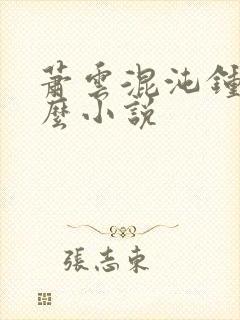 蕭雲混沌鍾
麼小説
張志東